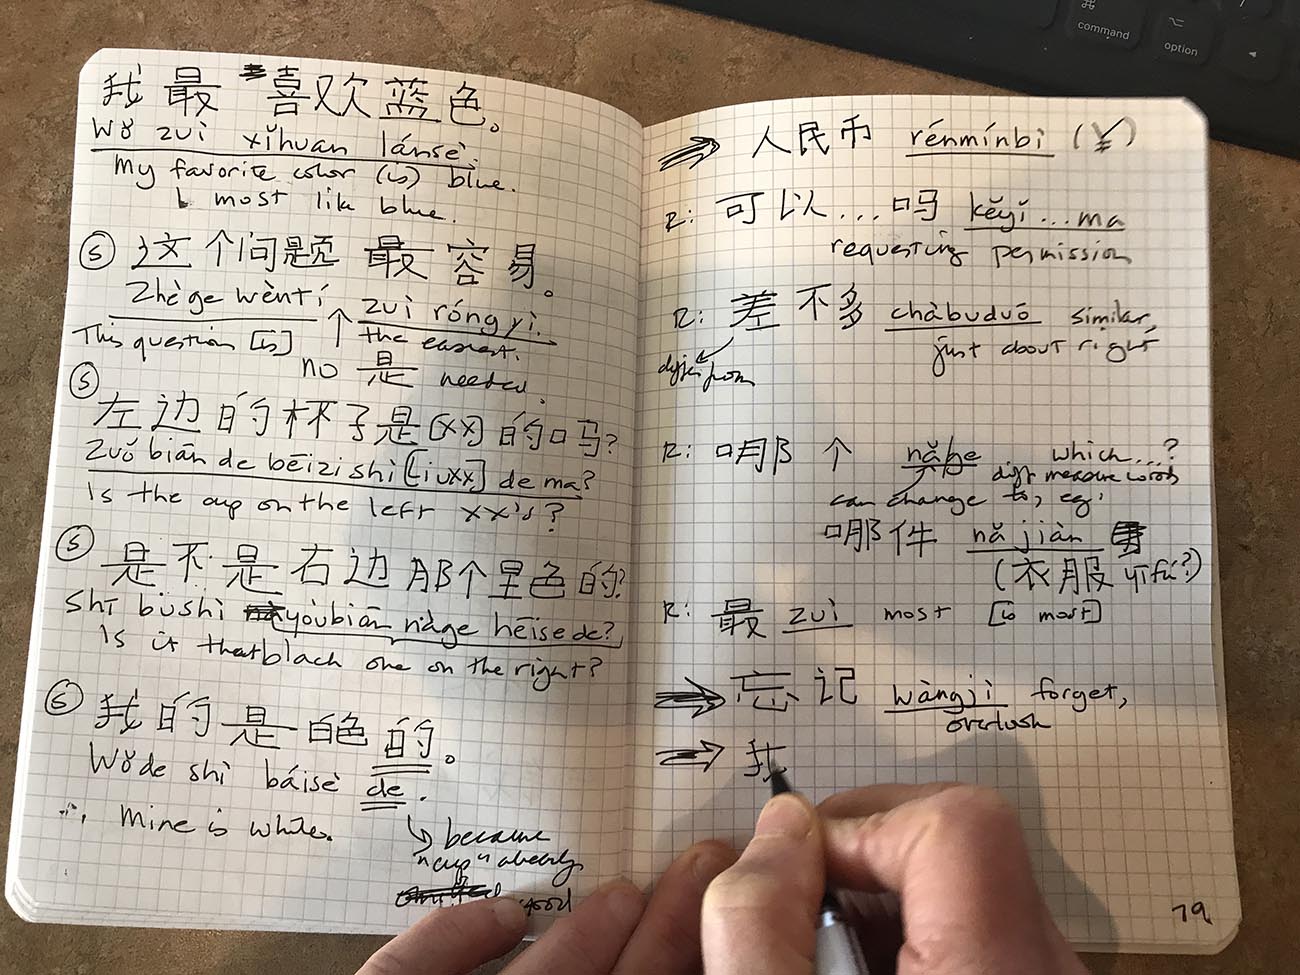 我最喜欢蓝色。
Wǒ zuì xǐhuan lánsè.
My favorite color (is) blue.
I most like blue.
Ⓢ 这个问题最容易。
Zhège wèntí ↑ zuì róngyì.
This question [is] the easiest.
no 是 needed.
Ⓢ 左边的杯子是[xx]的吗?
Zuǒbiān de bēizi shì [Liuxx] de ma?
Is the cup on the left xx's?
Ⓢ 是不是右边那个黑色的?
Shī bùshì yòubiān nàge hēise de?
Is it that black one on the right?
Ⓢ 我的是白色的。
Wǒde shì báisè de.
Mine is white.
because
"cup" already
command
option
⇒ 人民币 rénmínbì (¥)
R: 可以...吗 kěyǐ...ma
requesting permission
R: 差不多 chàbuduō similar,
just about right
from
R: 哪个 nǎge which...?
diff measure words
can change to, eg:
哪件 nǎ jiàn
(衣服 yīfú?)
R: 最 zuì most [is most]
⇒ 忘记 wàngjì forget,
overlook
⇒ 我
79